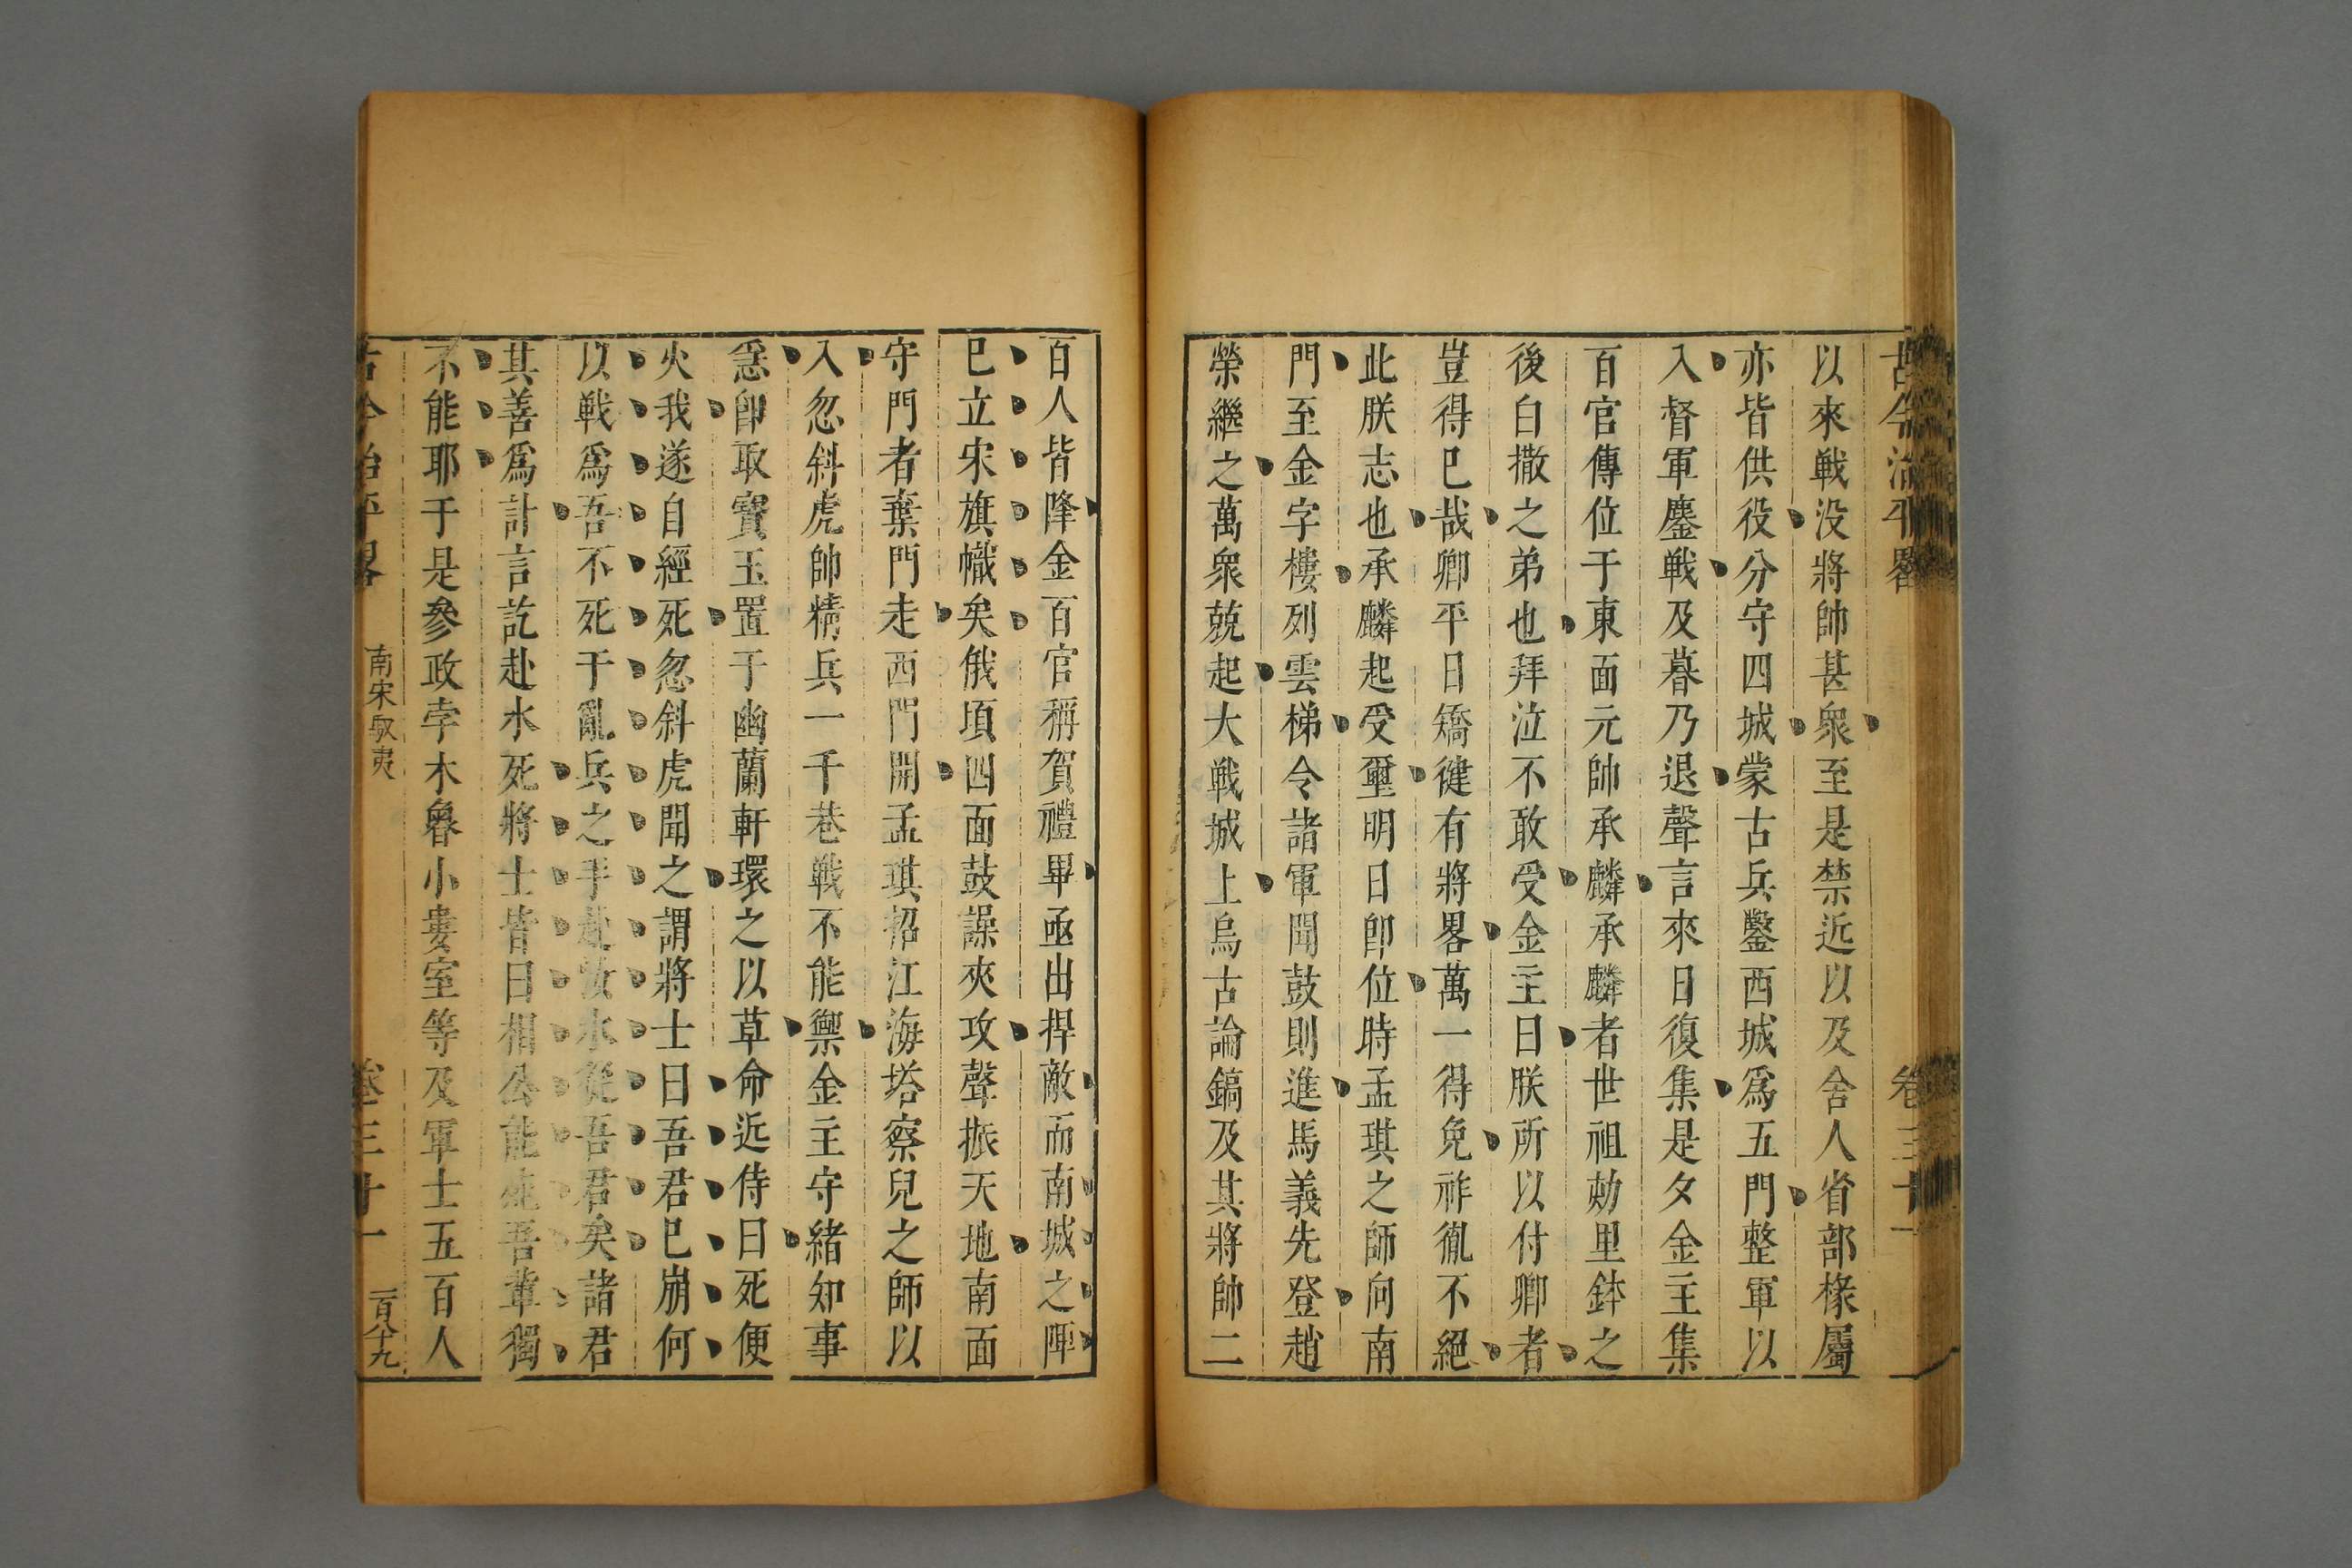 古今治平畧 卷三十一
以來戰没將帥甚衆至是禁近以及舍人省部椽屬
亦皆供役分守四城蒙古兵鑿西城爲五門整軍以
入督軍鏖戰及暮乃退聲言來日復集是夕金主集
百官傳位于東面元帥承麟承麟者世祖劾里鉢之
後白撒之弟也拜泣不敢受金主曰朕所以付卿者
豈得已哉卿平日矯健有將畧萬一得免祚㣧不絕
此朕志也承麟起受璽明日卽位時孟珙之師向南
門至金字樓列雲梯令諸軍聞鼓則進馬義先登趙
榮繼之萬衆兢起大戰城上烏古論鎬及其將帥二
百人皆降金百官稱賀禮畢亟出捍敵而南城之陴
已立宋旗幟矣俄頃四面鼓譟夾攻聲振天地南面
守門者棄門走西門開孟珙招江海塔察兒之師以
入忽斜虎帥精兵一千巷戰不能禦金主守緒知事
急卽取寶玉置于幽蘭軒環之以草命近侍曰死便
火我遂自經死忽斜虎聞之謂將士曰吾君已崩何
以戰爲吾不死于亂兵之手赴汝水從吾君矣諸君
其善爲計言訖赴水死將士皆曰相公能死吾輩獨
不能耶于是參政孛木魯小婁室等及軍士五百人
古今治平畧 南宋馭夷 卷三十一 一百八十九